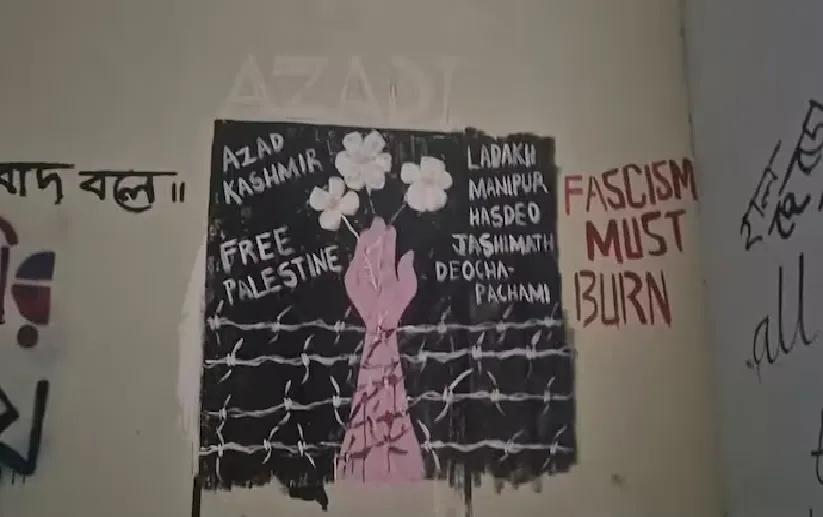 AZADI
বাদ বলে॥
AZAD
KASHMIR
FREE
PALESTINE
LADAKH
MANIPUR
HASDEO
JASHIMATH
DEOCHA-
PACHAMI
FASCISM
MUST
BURN
all